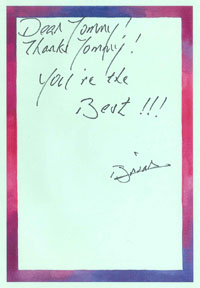 Dear Tommy!
Thanks Tommy!
You're the
Best !!!